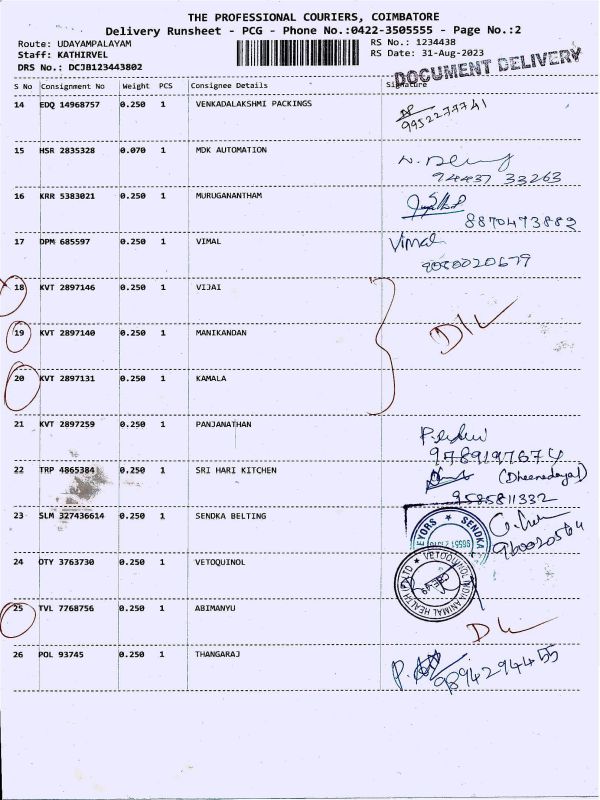 THE PROFESSIONAL COURIERS, COIMBATORE
Delivery Runsheet - PCG - Phone No.:0422-3505555 - Page No.:2
Route: UDAYAMPALAYAM RS No.: 1234438
Staff: KATHIRVEL RS Date: 31-Aug-2023
DRS No.: DCJB123443802
DOCUMENT DELIVERY
S No Consignment No Weight PCS Consignee Details Signature
14 EDQ 14968757 0.250 1 VENKADALAKSHMI PACKINGS
9952277741
15 HSR 2835328 0.070 1 MDK AUTOMATION
94437 33263
16 KRR 5383021 0.250 1 MURUGANANTHAM
8870473882
17 DPM 685597 0.250 1 VIMAL Vimal
9080020679
18 KVT 2897146 0.250 1 VIJAI
19 KVT 2897140 0.250 1 MANIKANDAN D/L
20 KVT 2897131 0.250 1 KAMALA
21 KVT 2897259 0.250 1 PANJANATHAN
9789197674
22 TRP 4865384 0.250 1 SRI HARI KITCHEN (Dheenadayal)
9585811332
23 SLM 327436614 0.250 1 SENDKA BELTING
EYORS ★ SENDKA
24 OTY 3763730 0.250 1 VETOQUINOL
VETOQUINOL INDIA ANIMAL HEALTH (P) LTD ★
25 TVL 7768756 0.250 1 ABIMANYU
D/L
26 POL 93745 0.250 1 THANGARAJ
9894294455